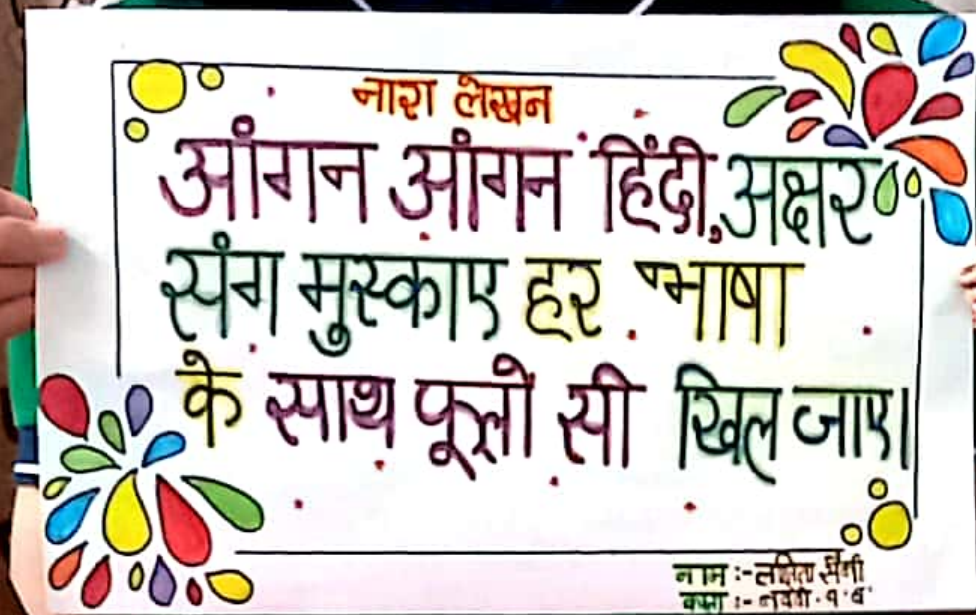 नारा लेखन
आंगन आंगन हिंदी, अक्षर
संग मुस्काए हर भाषा
के साथ फूलों सी खिल जाए।
नाम :- सैनी
कक्षा :-